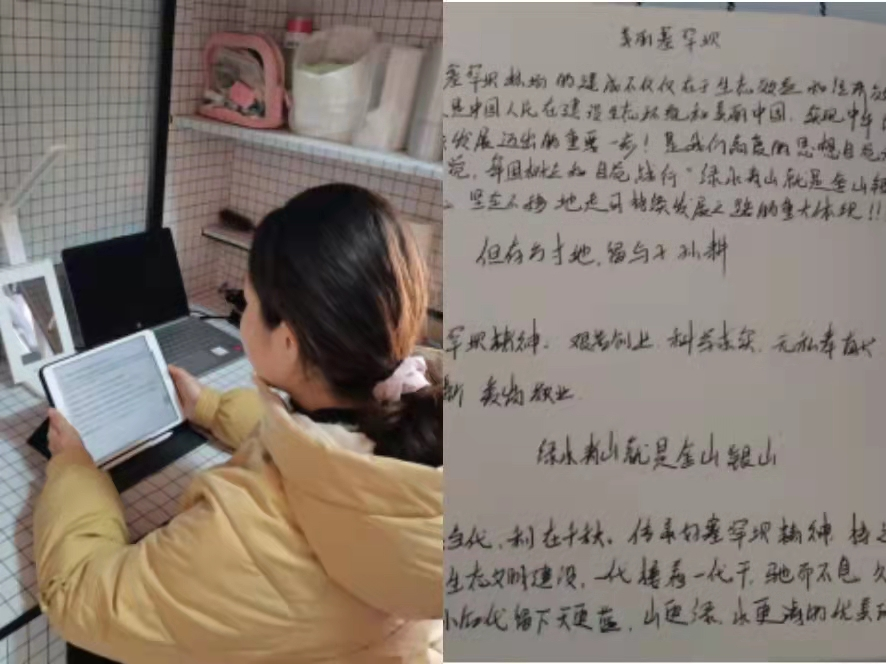 美丽塞罕坝
塞罕坝林场的建成不仅仅在于生态效益和经济效
是中国人民在建设生态环境和美丽中国,实现中华
发展迈出的重要一步!是我们高度的思想自觉
牢固树立和自觉践行"绿水青山就是金山银
坚定不移地走可持续发展之路的重大体现!!
但存方寸地,留与子孙耕
罕坝精神:艰苦创业、科学求实、无私奉献
新 爱岗敬业
绿水青山就是金山银山
当代,利在千秋。传承好塞罕坝精神,
生态文明建设,一代接着一代干,驰而不息,久
代留下天更蓝,山更绿,水更清的优美环